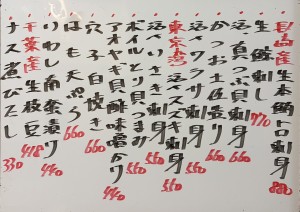 長崎産 生本鮪トロ刺身 880
生鯵刺し 770
活真つぶ貝刺身
かつお土佐造り 660
活イワラサ刺身 550
東京湾 活スズキ刺身 550
活いさき刺身 550
ボイルとり貝つまみ
アオヤギ貝酢味噌がけ 440
穴子白焼き 660
はも天ぷら 660
いわし南蛮漬け 440
千葉産 生枝豆 418
ナス煮びたし 330